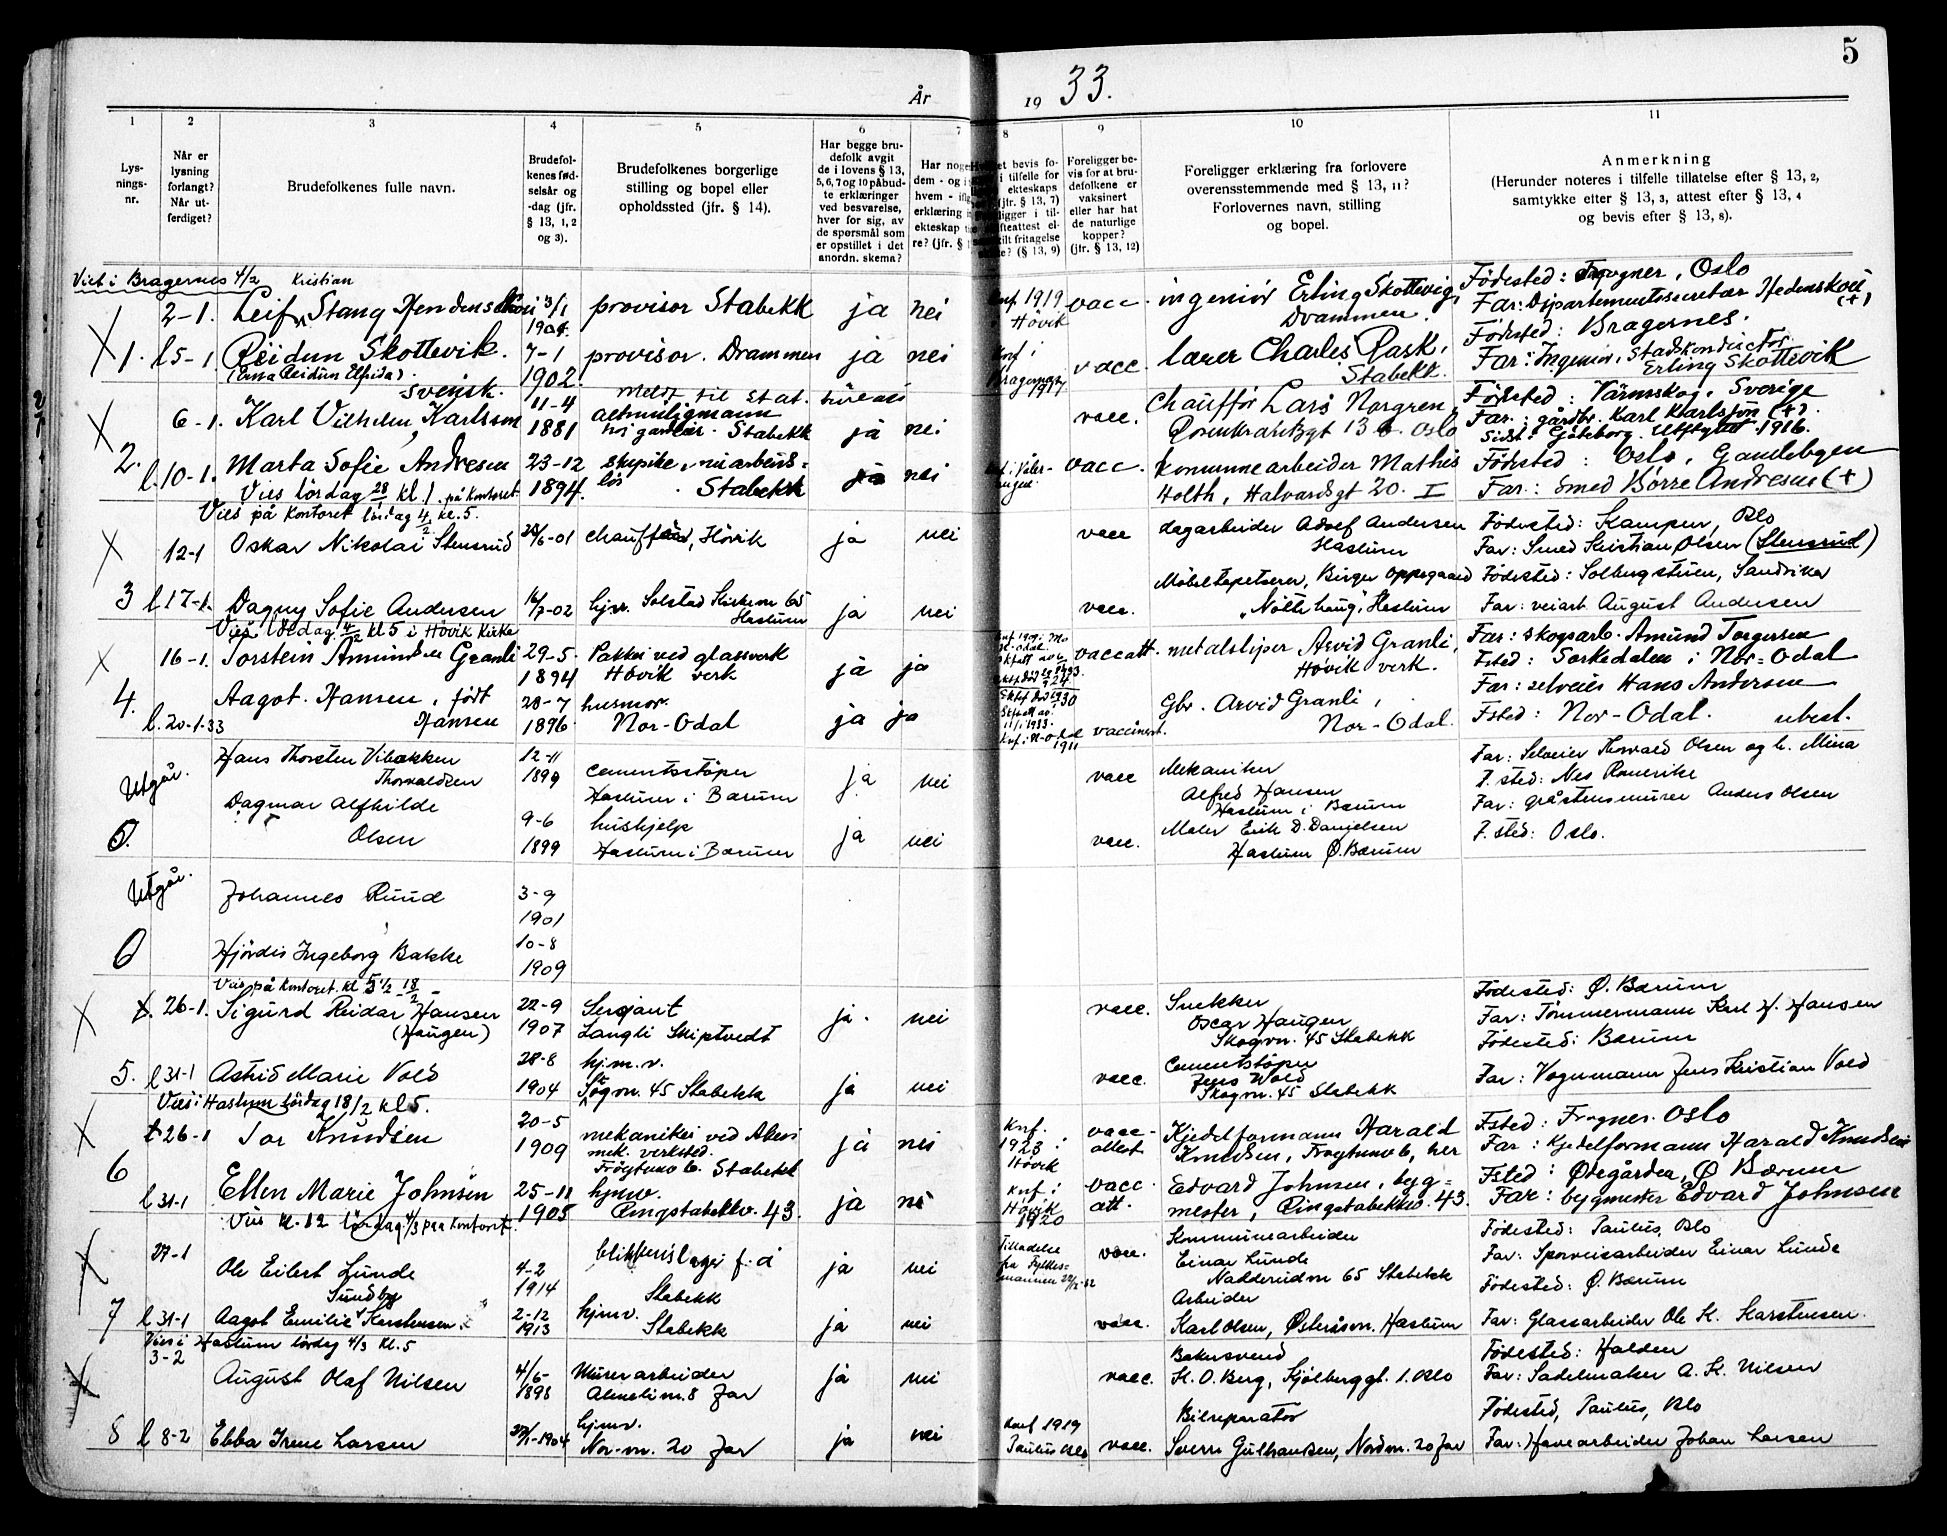 5
År 19 33.
1
2
3
4
5
6
7
8
9
10
11
Lys-
nings-
nr.
Når er
lysning
forlangt?
Når ut-
ferdiget?
Brudefolkenes fulle navn.
Brudefol-
kenes fød-
selsår og
-dag (jfr.
§ 13, 1, 2
og 3).
Brudefolkenes borgerlige
stilling og bopel eller
opholdssted (jfr. § 14).
Har begge bru-
defolk avgit
de i lovens § 13,
5, 6, 7 og 10 påbud-
te erklæringer
ved besvarelse,
hver for sig, av
de spørsmål som
er opstillet i det
anordn. skema?
Har noge
dem - og i
hvem - ifl
erklæring
ekteskap
re? (jfr. §
et bevis fo-
i tilfelle for
ekteskaps
(jfr. § 13, 7)
ligger i til-
fteattest el-
tilt fritagelse
? (§ 13, 9)
Foreligger be-
vis for at bru-
defolkene er
vaksinert
eller har hat
de naturlige
kopper?
(jfr. § 13, 12)
Foreligger erklæring fra forlovere
overensstemmende med § 13, 11?
Forlovernes navn, stilling
og bopel.
Anmerkning
(Herunder noteres i tilfelle tillatelse efter § 13, 2,
samtykke efter § 13, 3, attest efter § 13, 4
og bevis efter § 13, 8).
Viet i Bragernes 4/2 Kristian
2-1. Leif Stang 3/1 provisor Stabekk ja nei 1919 vacc. ingeniør Erling Skottevig, Fødested: Frogner, Oslo
1904. Høvik Drammen. Far: Departementssecretær (+)
1. l 5-1 Reidun Skottevik. 7-1 provisor. Drammen ja nei vacc. lærer Charles Rask, Fødested: Bragernes.
(Erna Reidun Elfrida). 1902. 1917 Stabekk. Far: Ingeniør, Erling Skottevik
Svensk. Meldt til Stat.
6-1. Karl Vilhelm Karlsson 11-4 Stabekk ja nei vacc. Chauffør Lars Norgren, Fødested: Värmskog, Sverige
1881 Rosenkrantzgt 13 Oslo Far: gårdbr. Karl Karlsson (+).
Sidst: Göteborg. Utflyttet 1916.
2. l. 10-1. Marta Sofie Andresen 23-12 nei vacc. Kommunearbeider Mathis Fødested: Oslo, Gamlebyen
Vies lördag 28 kl. 1. på kontoret 1894. Stabekk Holth, Halvardsgt 20. I Far: Smed Børre Andresen (+)
Vies på kontoret lördag 4/2 kl. 5.
12-1 Oskar Nikolai Stensrud 6-01 chauffør, Hövik ja nei vacc dagarbeider Adolf Andersen Födested: Kampen, Oslo
Haslum Far: Smed Kristian Olsen (Stensrud)
3 l 17-1. Dagny Sofie Andersen 7-02 hjv. Solstad Kirkevn 65 ja nei vacc. Møbeltapetserer, Birger Oppegaard Födested: Solbergstuen, Sandvika
Haslum Haslum Far: veiarb August Andersen
Vies lørdag 4/2 kl 5 i Høvik Kirke
16-1. Torstein Granli 29-5. Pakker ved glassverk ja ja vaccatt. metalsliper Arvid Granli, Far: skogsarb. Amund Torgersen
1894 Høvik verk Høvik verk. Fsted: i Nor-Odal
4. Aagot Hansen, født 28-7 husmor. ja ja Gbr. Arvid Granli, Far: selveier Hans Andersen
l. 20-1-33 Hansen 1896. Nor-Odal 1911 vaccinert. Nor-Odal. Fsted: Nor-Odal. ubesl.
Utgår. Hans Thorsten Vibakken 12-11 Cementstøper ja nei vacc Mekaniker Far: Selveier Thorvald Olsen og h. Mina
Thorvaldsen 1899 Haslum i Bærum Alfred Hansen F. sted: Nes Romerike
Haslum i Bærum
5. Dagmar Alfhilde 9-6 hushjelp ja nei vacc. Maler Erik D. Danielsen Far: gråstensmurer Anders Olsen
Olsen 1899 Haslum i Bærum Haslum Ø. Bærum F. sted: Oslo.
Utgår. Johannes Ruud 3-9
1901
6 Hjördis Ingeborg Bakke 10-8
1909
Vies på kontoret kl 5 1/2 18/2
26-1. Sigurd Reidar Hansen 22-9 Sergiant ja. nei vacc. Snekker Födested: Ø. Bærum
(Haugen) 1907 Langli Skiptvedt Oscar Haugen Far: Tömmermann Karl H. Hansen
Skogvn. 45 Stabekk
5. l 31-1 Astrid Marie Vold 28-8 hj.m.v. ja nei vacc. Cementstøper Födested: Bærum
1904 Skogvn. 45 Stabekk Jens Wold Far: Vognmann Jens Kristian Vold
Skogvn. 45 Stabekk
Vies i Haslum lördag 18/2 kl 5.
26-1 Tor Knudsen 20-5 mekaniker ved Akers ja nei Knf. vacc- Kjedelformann Harald Fsted: Frogner Oslo
1909 mek. verksted. 1923 i attest Knudsen, her Far: Kjedelformann Harald Knudsen
Stabekk Høvik
6 l 31-1 Ellen Marie Johnsen 25-11 hjmv. ja nei Knf. i vacc. Edvard Johnsen, byg- Fsted: Ødegården, Ø Bærum
1905 Ringstabekkv. 43. Høvik att. mester, Ringstabekkv. 43. Far: bygmester Edvard Johnsen
1920
Vies kl. 12 lördag 4/3 paa kontoret.
27-1 Ole Eilert Lunde 4-2 blikkenslager f. å ja nei Tilladelse vacc. Kommunearbeider Födested: Paulus, Oslo
Sundby 1914 Stabekk fra Fylkes- Einar Lunde Far: Sporveisarbeider Einar Lunde
mannen Nadderudvn 65 Stabekk
7 l 31-1 Aagot Emilie Karstensen 2-12 hjmv. ja nei vacc. Arbeider Födested: Ø. Bærum
1913 Stabekk Karl Olsen, Haslum Far: Glassarbeider Ole K. Karstensen.
Vies i Haslum lördag 4/3 kl. 5
3-2 August Olaf Nilsen 4/5- Murerarbeider ja nei vacc. Bakersvend Födested: Halden
1898 8 Jar K. O. Berg, 1. Oslo Far: Sadelmaker A. K. Nilsen
8 l 8-2 Ebba Irene Larsen 1904 hjmv. ja nei 1919 vacc. Bilreparatør Födested, Paulus, Oslo
20 Jar Paulus Oslo 20 Jar Far: Havearbeider Johan Larsen